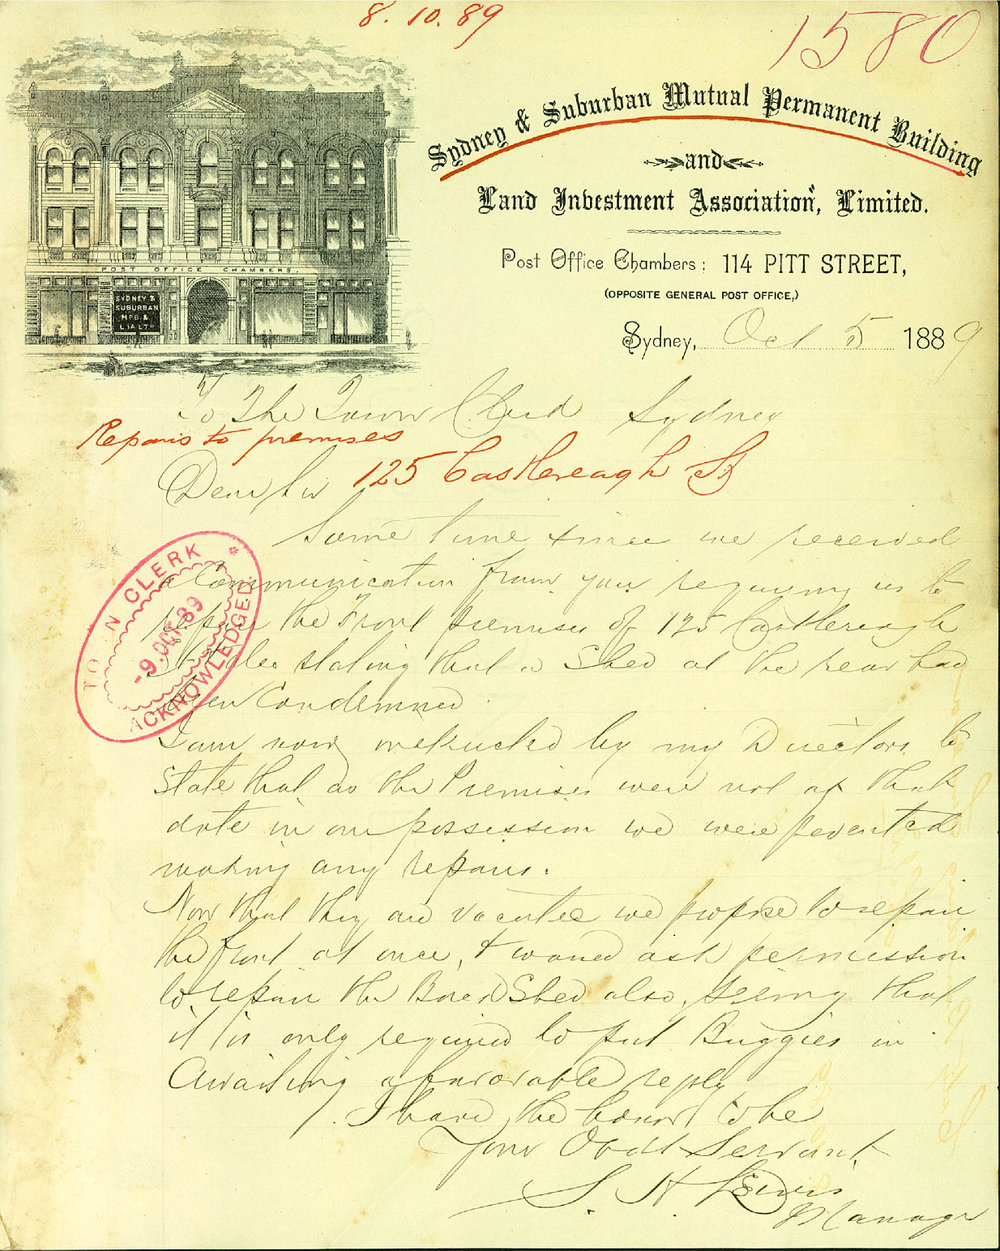 8.10.89
1580
Sydney & Suburban Mutual Permanent Building
and
Land Investment Association, Limited.
Post Office Chambers: 114 PITT STREET,
(OPPOSITE GENERAL POST OFFICE,)
Sydney, Oct 5 1889
POST OFFICE CHAMBERS
SYDNEY &
SUBURBAN
M.P.B. &
L.I.A. LTD
To The Town Clerk Sydney
Repairs to premises
125 Castlereagh St
Dear Sir
Some time since we received
a Communication from you requiring us to
repair the Front Premises of 125 Castlereagh
Street also stating that a Shed at the rear had
been Condemned
TOWN CLERK
9. OCT. 89
ACKNOWLEDGED
I am now instructed by my Directors to
State that as the Premises were not at that
date in our possession we were prevented
making any repairs.
Now that they are vacated we propose to repair
the front at once, & would ask permission
to repair the Shed also, seeing that
it is only required to put Buggies in
Awaiting a favorable reply
I have the honor to be
Your Obdt Servant,
S. H. Lewis
Manager